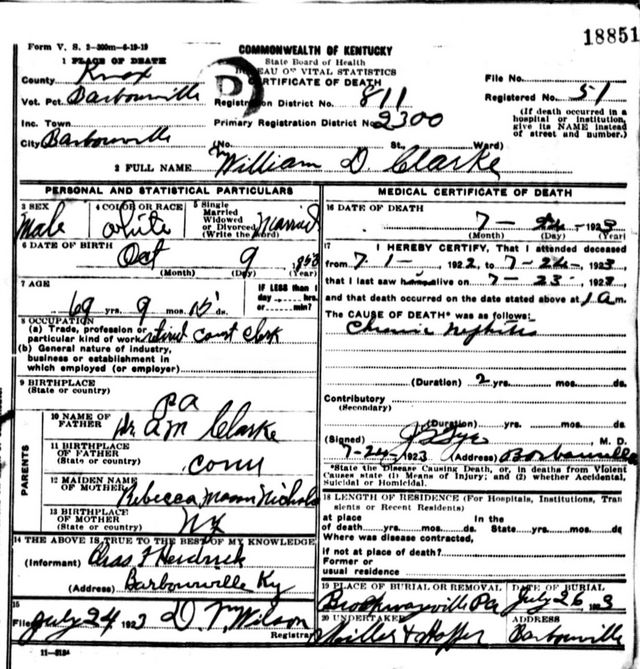 18851
Form V. S. 2-300m-6-19-19
COMMONWEALTH OF KENTUCKY
State Board of Health
BUREAU OF VITAL STATISTICS
CERTIFICATE OF DEATH
D
1 PLACE OF DEATH
County Knox
Vot. Pct. Barbourville
Inc. Town
City Barbourville
Registration District No. 811
Primary Registration District No. 2300
(No. St., Ward)
File No.
Registered No. 51
(If death occurred in a
hospital or institution,
give its NAME instead
of street and number.)
2 FULL NAME William D. Clarke
PERSONAL AND STATISTICAL PARTICULARS
3 SEX
Male
4 COLOR OR RACE
White
5 Single
Married
Widowed
or Divorced
(Write the word)
Married
6 DATE OF BIRTH
Oct 9
(Month) (Day) (Year)
7 AGE
69 yrs. 9 mos. 15 ds.
IF LESS than 1
day hrs.
or min?
8 OCCUPATION
(a) Trade, profession or
particular kind of work retired Court Clerk
(b) General nature of industry,
business or establishment in
which employed (or employer)
9 BIRTHPLACE
(State or country)
Pa
PARENTS
10 NAME OF
FATHER
Dr A M Clarke
11 BIRTHPLACE
OF FATHER
(State or country)
Conn
12 MAIDEN NAME
OF MOTHER
Rebecca Mason Nichols
13 BIRTHPLACE
OF MOTHER
(State or country)
NY
14 THE ABOVE IS TRUE TO THE BEST OF MY KNOWLEDGE
(Informant) Chas F Heidrick
(Address) Barbourville Ky
15
Filed July 24 1923 D. M Wilson
Registrar
11-3184
MEDICAL CERTIFICATE OF DEATH
16 DATE OF DEATH
7- 24- 1923
(Month) (Day) (Year)
17 I HEREBY CERTIFY, That I attended deceased
from 7 1- 1922, to 7-24-, 1923,
that I last saw him alive on 7-23- 1923
and that death occurred on the date stated above at 1 am.
The CAUSE OF DEATH* was as follows:
Chronic Nephritis
(Duration) 2 yrs. mos. ds.
Contributory
(Secondary)
(Duration) yrs. mos. ds.
(Signed) M. D.
7-24, 1923 (Address) Barbourville
*State the Disease Causing Death, or, in deaths from Violent
Causes state (1) Means of Injury; and (2) whether Accidental,
Suicidal or Homicidal.
18 LENGTH OF RESIDENCE (For Hospitals, Institutions, Tran
sients or Recent Residents)
at place In the
of death yrs. mos. ds. State yrs. mos. ds.
Where was disease contracted,
if not at place of death?
Former or
usual residence
19 PLACE OF BURIAL OR REMOVAL
DATE OF BURIAL
Pa July 26 1923
20 UNDERTAKER
ADDRESS
Miller & Hopper Barbourville